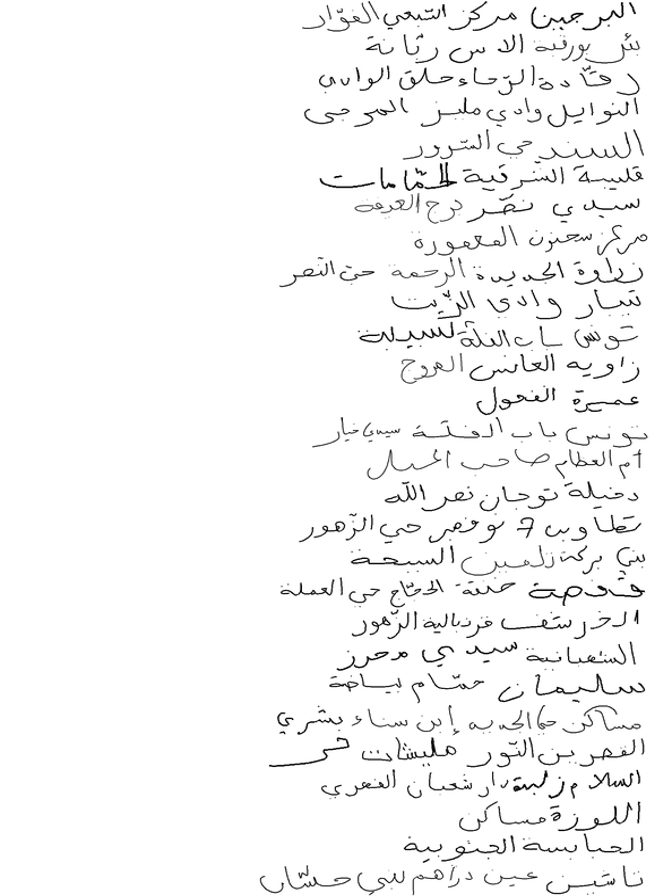 البرجين مركز الشبعي الفوّار
بئر بورقبة الاس رنانة
رقّادة الرّحاء حلق الوادي
النوايل وادي مليز المرجى
السند حي السّرور
قليبية الشرقية الحمّامات
سيدي نصر
مركز سحنون المعمورة
زراوة الجديدة الرحمة حيّ النصر
تيبار وادي الزّيت
تونس باب
زاوية العانس المروج
عميرة الفحول
تونس باب الفلة سيدي خيار
أم العظام صاحب الجبل
دخيلة توجان نصر الله
تطاوين 7 نوفمبر حي الزّهور
بني بركة زلمين السبخة
قفصة خنقة الحجّاج حي العملة
الدخر شنف قرنبالية الزّهور
الشعبانية سيدي محرز
سليمان حشّام بياضة
مساكن حمّام الجديدي إبن سناء بشري
القصر بن النّور مليشات
السلام زلبة دار شعبان الفهري
اللوزة مساكن
الحبابسة الجنوبية
تاشين عين دراهم لبني حشّان